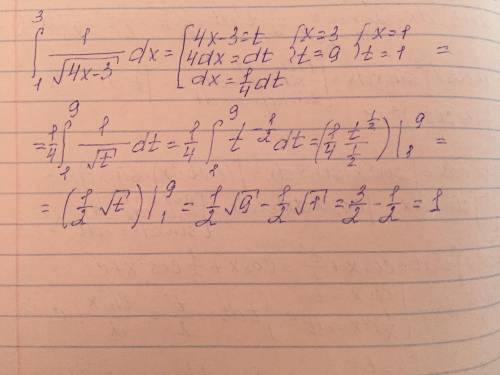 ∫₁³ 1/√(4x-3) dx = [4x-3=t; 4dx=dt; dx=1/4 dt {x=3; t=9 {x=1; t=1 =
= 1/4 ∫₁⁹ 1/√t dt = 1/4 ∫₁⁹ t^(-1/2) dt = (1/4 t^(1/2)/(1/2))|₁⁹ =
= (1/2 √t)|₁⁹ = 1/2 √9 - 1/2 √1 = 3/2 - 1/2 = 1